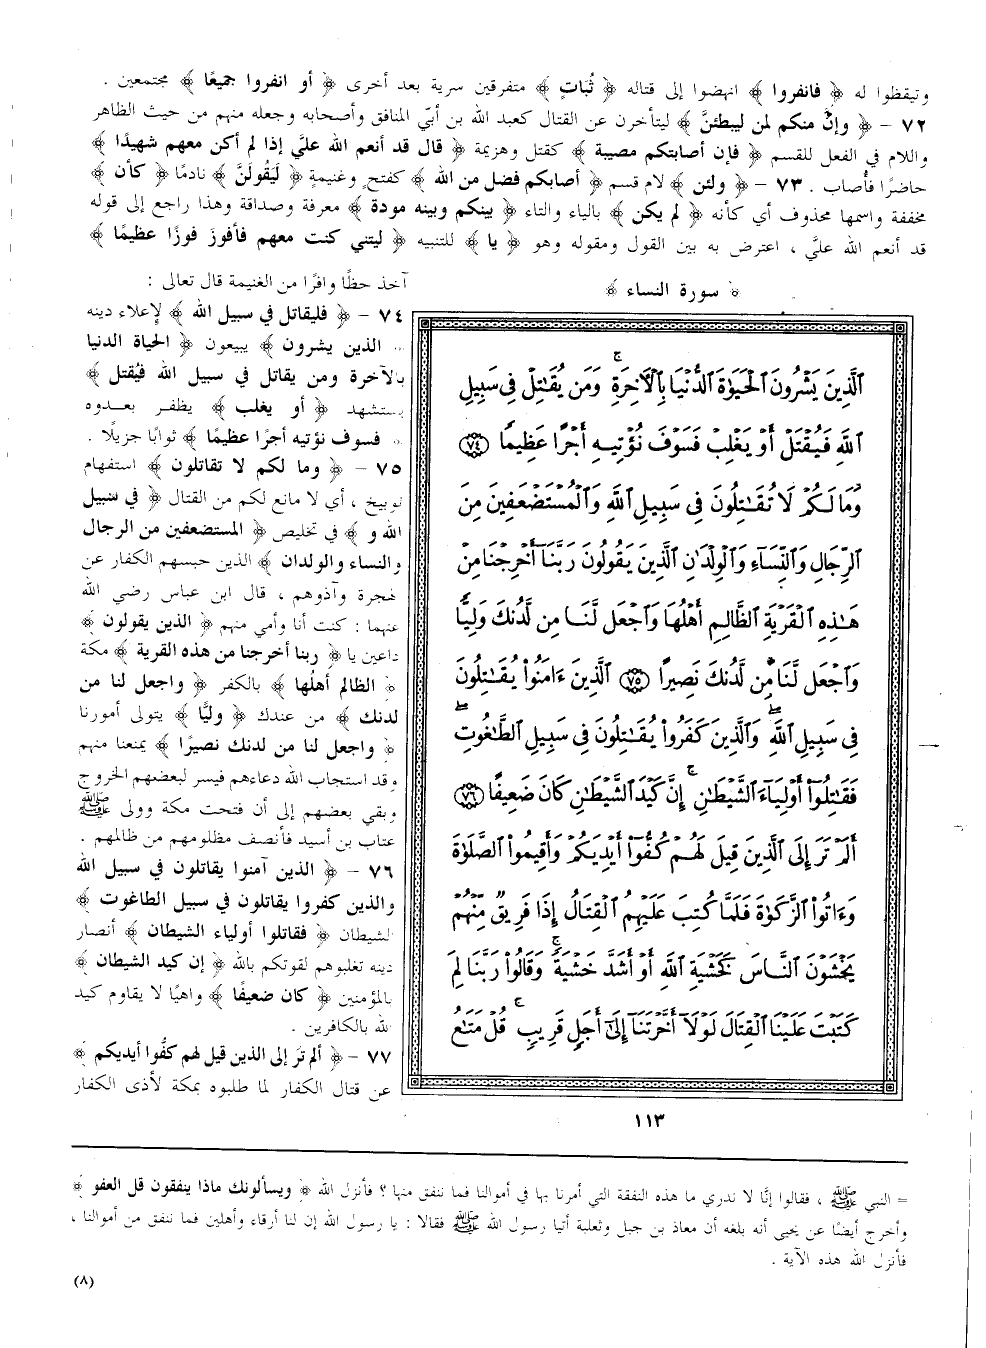 وتيقظوا له ﴿ فانفروا ﴾ انهضوا إلى قتاله ﴿ ثُبَاتٍ ﴾ متفرقين سرية بعد أخرى ﴿ أو انفروا جميعًا ﴾ مجتمعين .
٧٢ - ﴿ وإنَّ منكم لمن ليبطئنَّ ﴾ ليتأخرن عن القتال كعبد الله بن أبيّ المنافق وأصحابه وجعله منهم من حيث الظاهر
واللام في الفعل للقسم ﴿ فإن أصابتكم مصيبة ﴾ كقتل وهزيمة ﴿ قال قد أنعم الله عليَّ إذا لم أكن معهم شهيدًا ﴾
حاضرًا فأُصاب . ٧٣ - ﴿ ولئن ﴾ لام قسم ﴿ أصابكم فضل من الله ﴾ كفتحٍ وغنيمةٍ ﴿ لَيَقُولَنَّ ﴾ نادمًا ﴿ كأن ﴾
مخففة واسمها محذوف أي كأنه ﴿ لم يكن ﴾ بالياء والتاء ﴿ بينكم وبينه مودة ﴾ معرفة وصداقة وهذا راجع إلى قوله
قد أنعم الله عليَّ ، اعترض به بين القول ومقوله وهو ﴿ يا ﴾ للتنبيه ﴿ ليتني كنت معهم فأفوزَ فوزًا عظيمًا ﴾
آخذ حظًا وافرًا من الغنيمة قال تعالى :
٧٤ - ﴿ فليقاتل في سبيل الله ﴾ لإعلاء دينه
الذين يشرون ﴾ يبيعون ﴿ الحياة الدنيا
بالآخرة ومن يقاتل في سبيل الله فيُقتل ﴾
يستشهد ﴿ أو يغلب ﴾ يظفر بعدوه
فسوف نؤتيه أجرًا عظيمًا ﴾ ثوابًا جزيلًا .
٧٥ - ﴿ وما لكم لا تقاتلون ﴾ استفهام
توبيخ ، أي لا مانع لكم من القتال ﴿ في سبيل
الله و ﴾ في تخليص ﴿ المستضعفين من الرجال
والنساء والولدان ﴾ الذين حبسهم الكفار عن
الهجرة وآذوهم ، قال ابن عباس رضي الله
عنهما : كنت أنا وأمي منهم ﴿ الذين يقولون ﴾
داعين يا ﴿ ربنا أخرجنا من هذه القرية ﴾ مكة
﴿ الظالم أهلُها ﴾ بالكفر ﴿ واجعل لنا من
لدنك ﴾ من عندك ﴿ وليًّا ﴾ يتولى أمورنا
﴿ واجعل لنا من لدنك نصيرًا ﴾ يمنعنا منهم
وقد استجاب الله دعاءهم فيسر لبعضهم الخروج
وبقي بعضهم إلى أن فتحت مكة وولى ﷺ
عتاب بن أسيد فأنصف مظلومهم من ظالمهم .
٧٦ - ﴿ الذين آمنوا يقاتلون في سبيل الله
والذين كفروا يقاتلون في سبيل الطاغوت ﴾
الشيطان ﴿ فقاتلوا أولياء الشيطان ﴾ أنصار
دينه تغلبوهم لقوتكم بالله ﴿ إن كيد الشيطان ﴾
بالمؤمنين ﴿ كان ضعيفًا ﴾ واهيًا لا يقاوم كيد
الله بالكافرين .
٧٧ - ﴿ ألم ترَ إلى الذين قيل لهم كفُّوا أيديكم ﴾
عن قتال الكفار لما طلبوه بمكة لأذى الكفار
﴿ سورة النساء ﴾
ٱلَّذِينَ يَشْرُونَ ٱلْحَيَوٰةَ ٱلدُّنْيَا بِٱلْأَخِرَةِ ۚ وَمَن يُقَٰتِلْ فِى سَبِيلِ
ٱللَّهِ فَيُقْتَلْ أَوْ يَغْلِبْ فَسَوْفَ نُؤْتِيهِ أَجْرًا عَظِيمًا ۝٧٤
وَمَا لَكُمْ لَا تُقَٰتِلُونَ فِى سَبِيلِ ٱللَّهِ وَٱلْمُسْتَضْعَفِينَ مِنَ
ٱلرِّجَالِ وَٱلنِّسَآءِ وَٱلْوِلْدَٰنِ ٱلَّذِينَ يَقُولُونَ رَبَّنَآ أَخْرِجْنَا مِنْ
هَٰذِهِ ٱلْقَرْيَةِ ٱلظَّالِمِ أَهْلُهَا وَٱجْعَل لَّنَا مِن لَّدُنكَ وَلِيًّا
وَٱجْعَل لَّنَا مِن لَّدُنكَ نَصِيرًا ۝٧٥ ٱلَّذِينَ ءَامَنُوا۟ يُقَٰتِلُونَ
فِى سَبِيلِ ٱللَّهِ ۖ وَٱلَّذِينَ كَفَرُوا۟ يُقَٰتِلُونَ فِى سَبِيلِ ٱلطَّٰغُوتِ ۖ
فَقَٰتِلُوٓا۟ أَوْلِيَآءَ ٱلشَّيْطَٰنِ ۚ إِنَّ كَيْدَ ٱلشَّيْطَٰنِ كَانَ ضَعِيفًا ۝٧٦
أَلَمْ تَرَ إِلَى ٱلَّذِينَ قِيلَ لَهُمْ كُفُّوٓا۟ أَيْدِيَكُمْ وَأَقِيمُوا۟ ٱلصَّلَوٰةَ
وَءَاتُوا۟ ٱلزَّكَوٰةَ فَلَمَّا كُتِبَ عَلَيْهِمُ ٱلْقِتَالُ إِذَا فَرِيقٌ مِّنْهُمْ
يَخْشَوْنَ ٱلنَّاسَ كَخَشْيَةِ ٱللَّهِ أَوْ أَشَدَّ خَشْيَةً ۚ وَقَالُوا۟ رَبَّنَا لِمَ
كَتَبْتَ عَلَيْنَا ٱلْقِتَالَ لَوْلَآ أَخَّرْتَنَآ إِلَىٰٓ أَجَلٍ قَرِيبٍ ۗ قُلْ مَتَٰعُ
١١٣
= النبي ﷺ ، فقالوا إنَّا لا ندري ما هذه النفقة التي أمرنا بها في أموالنا فما ننفق منها ؟ فأنزل الله ﴿ ويسألونك ماذا ينفقون قل العفو ﴾
وأخرج أيضًا عن يحيى أنه بلغه أن معاذ بن جبل وثعلبة أتيا رسول الله ﷺ فقالا : يا رسول الله إن لنا أرقاء وأهلين فما ننفق من أموالنا ،
فأنزل الله هذه الآية .
(٨)